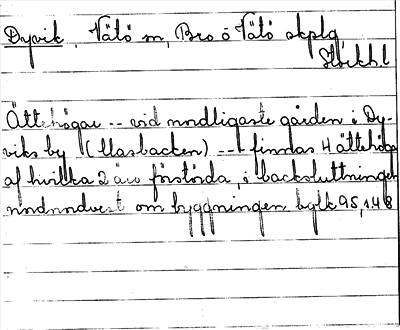 Dyvik, Vätö sn, Bro o Vätö skplg,
Stockh.l
Ättehögar -- vid nordligaste gården i Dy-
viks by (Masbacken) -- finnas 4 ättehögar
af hvilka 2 äro förstörda, i backsluttningen
nordnordvest om byggningen